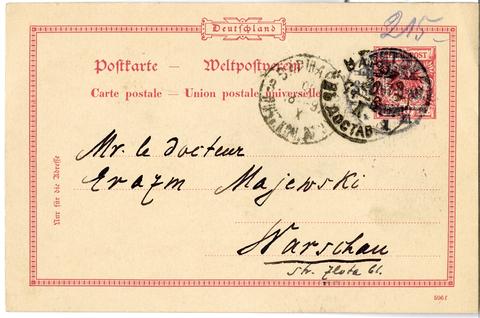 215-
Deutschland
Postkarte – Weltpostverein
Carte postale – Union postale universelle
ДОСТАВ
1
Nur für die Adresse
Mr. le docteur
Erazm Majewski
Warschau
str. Złota 61.
596 f